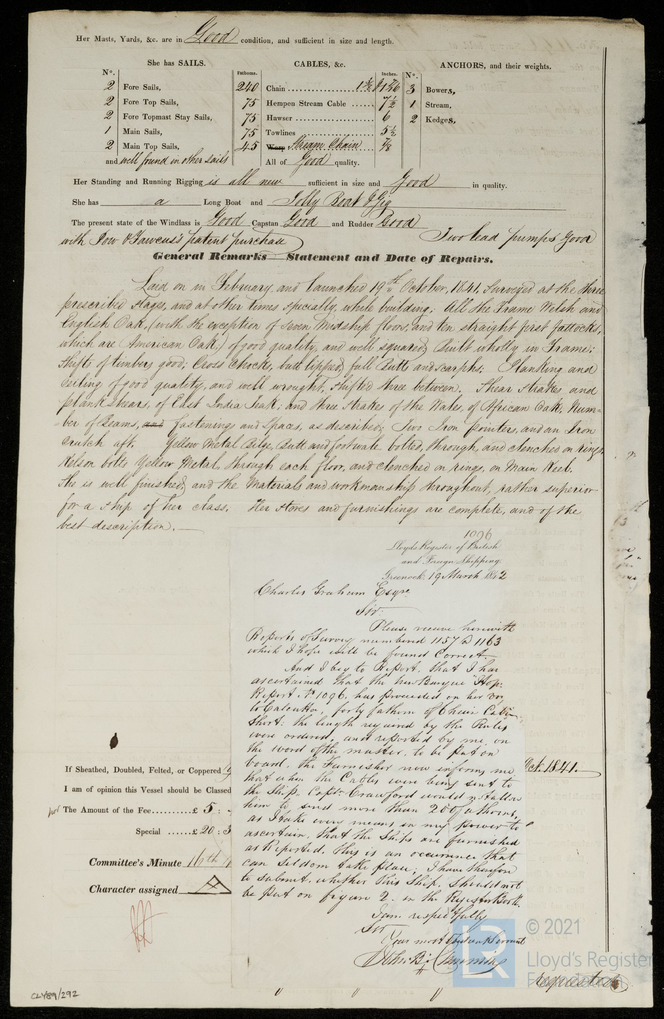 Her Masts, Yards, &c. are in Good condition, and sufficient in size and length.
She has SAILS.
CABLES, &c.
ANCHORS, and their weights.
N°.
Fathoms.
Inches.
N°.
2 Fore Sails, 240 Chain 1 7/16 3 Bowers,
2 Fore Top Sails, 75 Hempen Stream Cable 7½ 1 Stream,
2 Fore Topmast Stay Sails, 75 Hawser 6 2 Kedges,
1 Main Sails, 75 Towlines 5½
2 Main Top Sails, 45 Warp Stream Chain 7/8
and well found in other sails All of Good quality.
Her Standing and Running Rigging is all new sufficient in size and Good in quality.
She has a Long Boat and Jolly Boat & Gig
The present state of the Windlass is Good Capstan Good and Rudder Good
with Pow & Fawcus's patent purchase Two lead pumps Good
General Remarks Statement and Date of Repairs.
Laid on in February, and launched 19th October, 1841, surveyed at the three
prescribed stages, and at other times specially, while building. All the Frame Welsh and
English Oak, (with the exception of Seven Midship floors, and ten straight first futtocks,
which are American Oak) of good quality, and well squared, Built wholly in Frame;
Shift of timbers good; Cross Chocks, butt lipped, full Butts and scarphs. Planking and
Ceiling of good quality, and well wrought, shifted three between. Shear Strakes, and
plank shears, of East India Teak; and three Strakes of the Wales, of African Oak; Num-
ber of Beams, and Fastenings and Spaces, as described; Two Iron pointers, and an Iron
Crutch aft. Yellow Metal Bilge, Butt and fortwate bolted, through, and clenched on rings,
Kelson bolts Yellow Metal, through each floor, and clenched on rings, on Main Keel.
She is well finished, and the Materials and workmanship throughout, rather superior
for a ship of her class. Her stores and furnishings are complete, and of the
best description.
1096
Lloyds Register of British
and Foreign Shipping
Greenock 19 March 1842
Charles Graham Esqre
Sir
Please receive herewith
Reports of Survey numbered 1157 to 1163
which I hope will be found Correct
And I beg to Report, that I has
ascertained that the new Barque Hope
Report No 1096, has proceeded on her vo
to Calcutta, forty fathom of Chain Cable
Short: the length required by the Rules
were ordered, and reported by me, on
the word of the master, to be put on
board. the Furnisher now informs me
that when the Cables were being sent to
the Ship, Captn Crawford would not allow
him to send more than 200 fathoms,
as I take every means in my power to
ascertain, that the Ships are furnished
as Reported. this is an occurrence that
can seldom take place, I have therefore
to submit, whether this Ship, should not
be put on figure 2. in the Register Book.
I am respectfully
Sir
Your most Obedient Servant
If Sheathed, Doubled, Felted, or Coppered
Oct. 1841.
I am of opinion this Vessel should be Classed
The Amount of the Fee £ 5
Special £ 20
Committee's Minute 16th
Character assigned
requested
CLY89/292
LR
© 2021
Lloyd's Register
Foundation